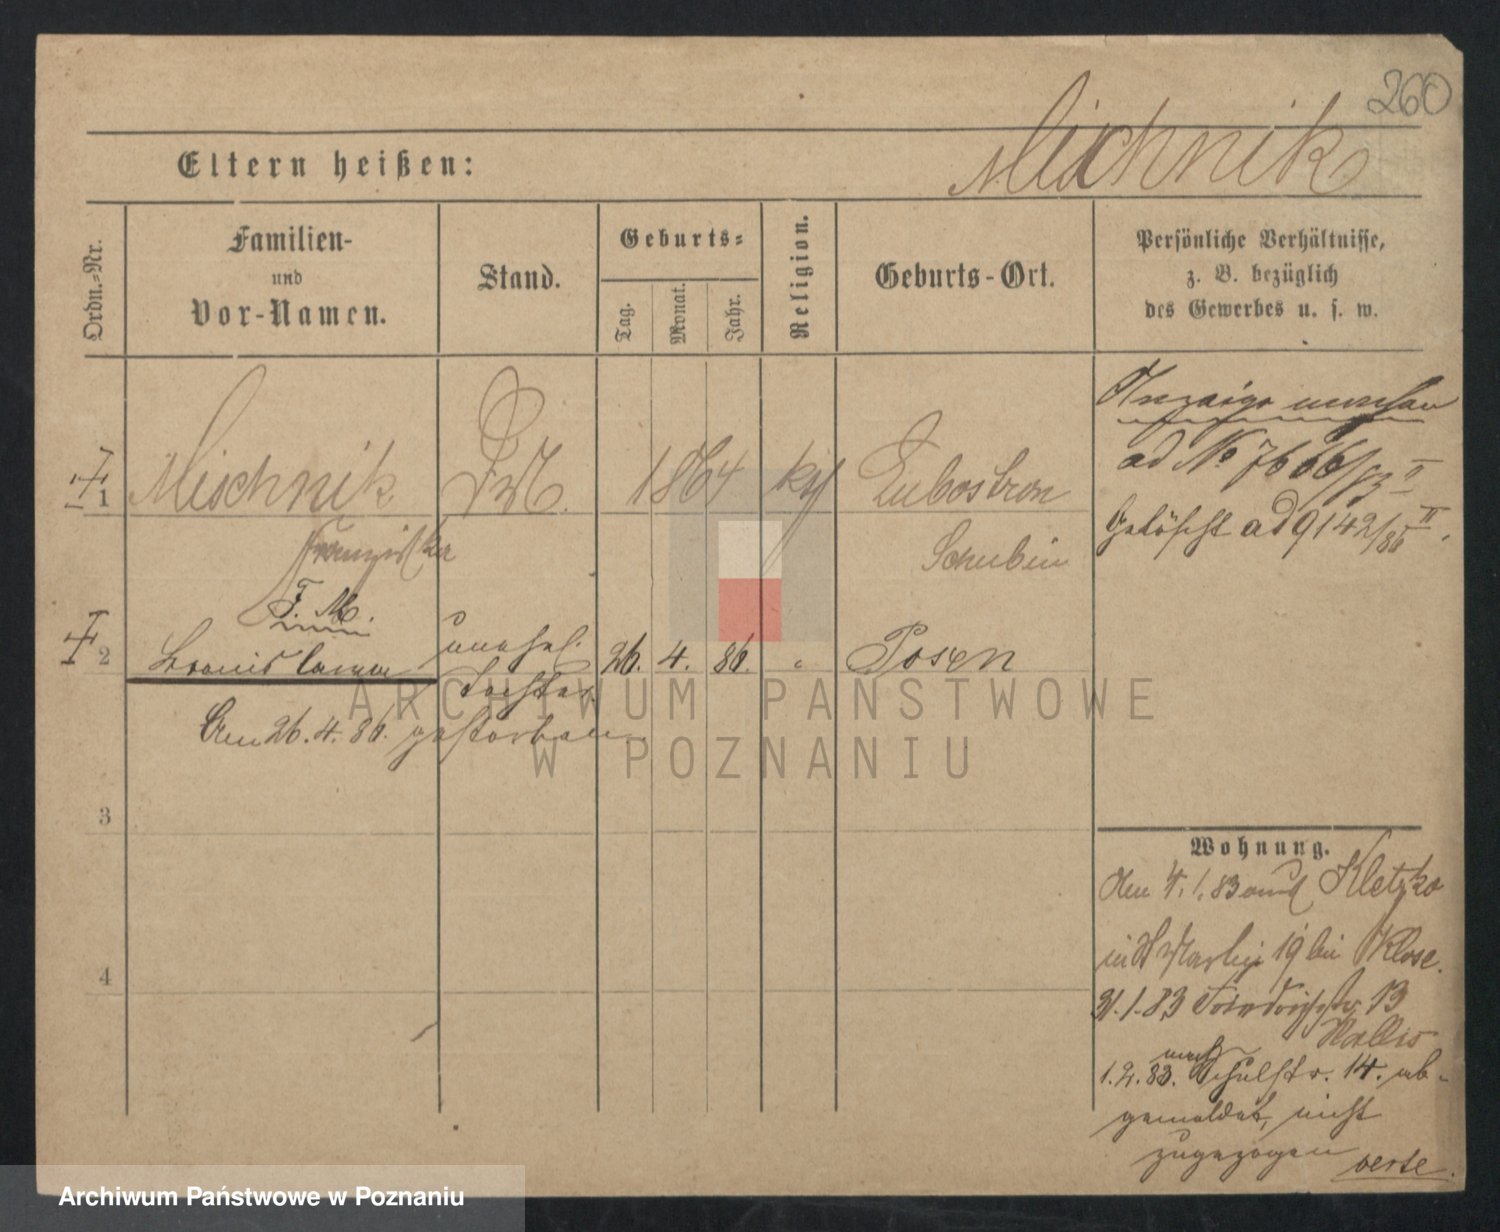 260
Mischnik
Eltern heißen:
Ordn.-Nr.
Familien-
und
Vor-Namen.
Stand.
Geburts-
Tag.
Monat.
Jahr.
Religion.
Geburts-Ort.
Persönliche Verhältnisse,
z. B. bezüglich
des Gewerbes u. s. w.
1
Mischnik
Franziska
1864
Lubostron
Schubin
Anzeige machen
ad No 7666/83 II
Gelöscht ad 9142/86 II.
F. M.
2
Bronislawa
unehel.
Tochter
26. 4. 86. "
Posen
Am 26.4.86. gestorben
3
4
Wohnung.
Am 4.1.83 aus Kletzko
in St Martin 19 bei Klose.
31.1.83 13
1.2.83. nach Schulstr. 14. ab-
gemeldet, nicht
zugezogen
verte.
ARCHIWUM PAŃSTWOWE
W POZNANIU
Archiwum Państwowe w Poznaniu